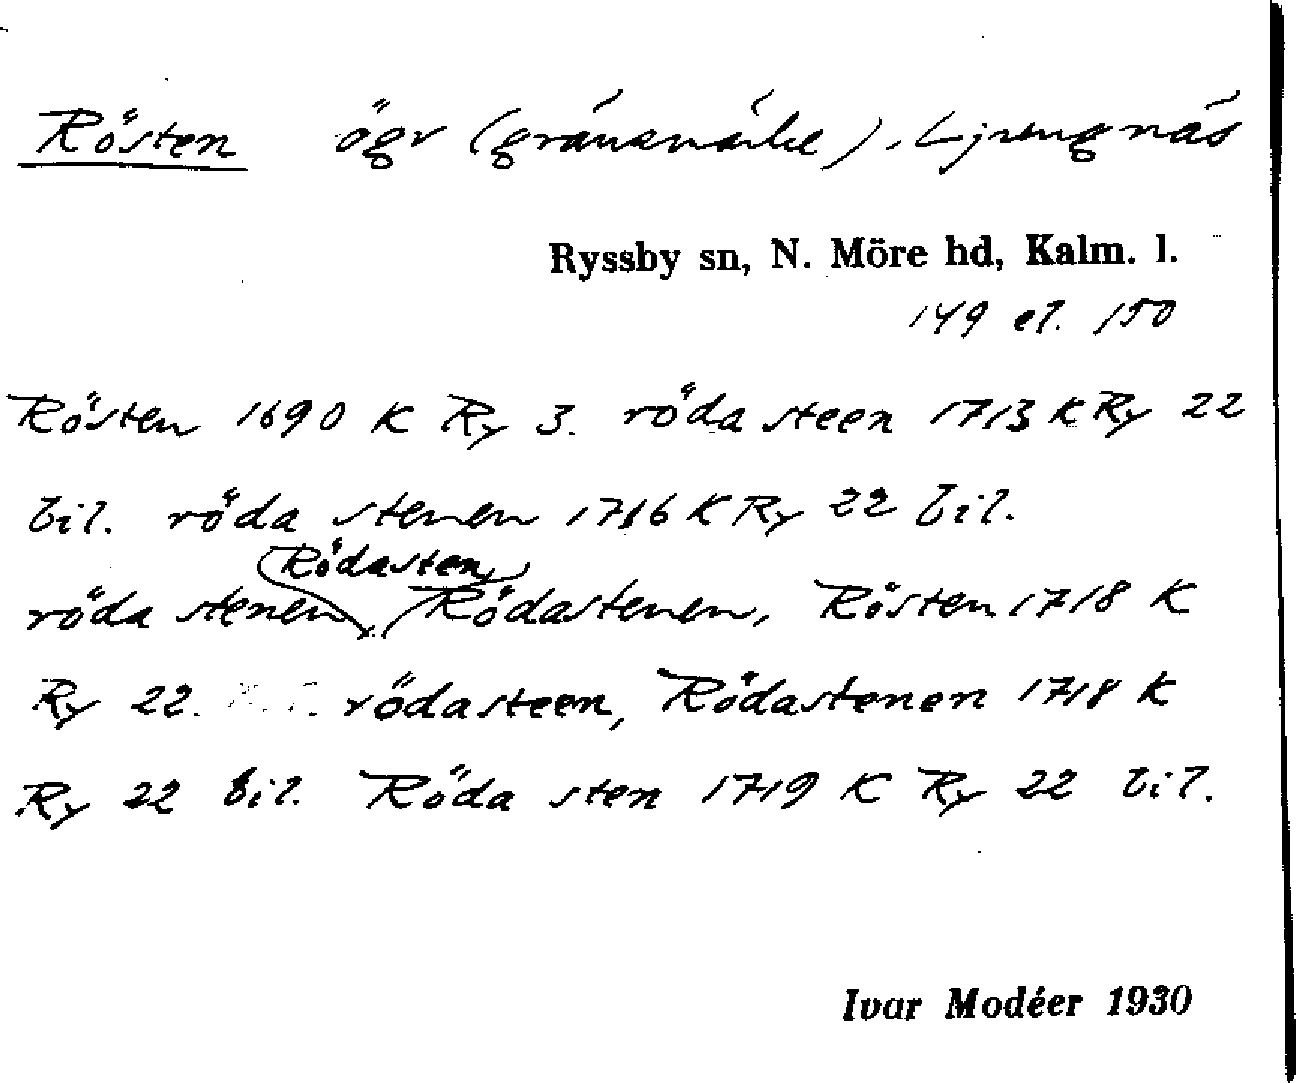 Rösten ögr (gränsmärke), Ljungnäs
Ryssby sn, N. Möre hd, Kalm. l.
149 el. 150
Rösten 1690 K Ry 3. röda steen 1713 K Ry 22
bil. röda stenen 1716 K Ry 22 bil.
Rödasten,
röda stenen, Rödastenen, Rösten 1718 K
Ry 22. rödasteen, Rödastenen 1718 K
Ry 22 bil. Röda sten 1719 K Ry 22 bil.
Ivar Modéer 1930